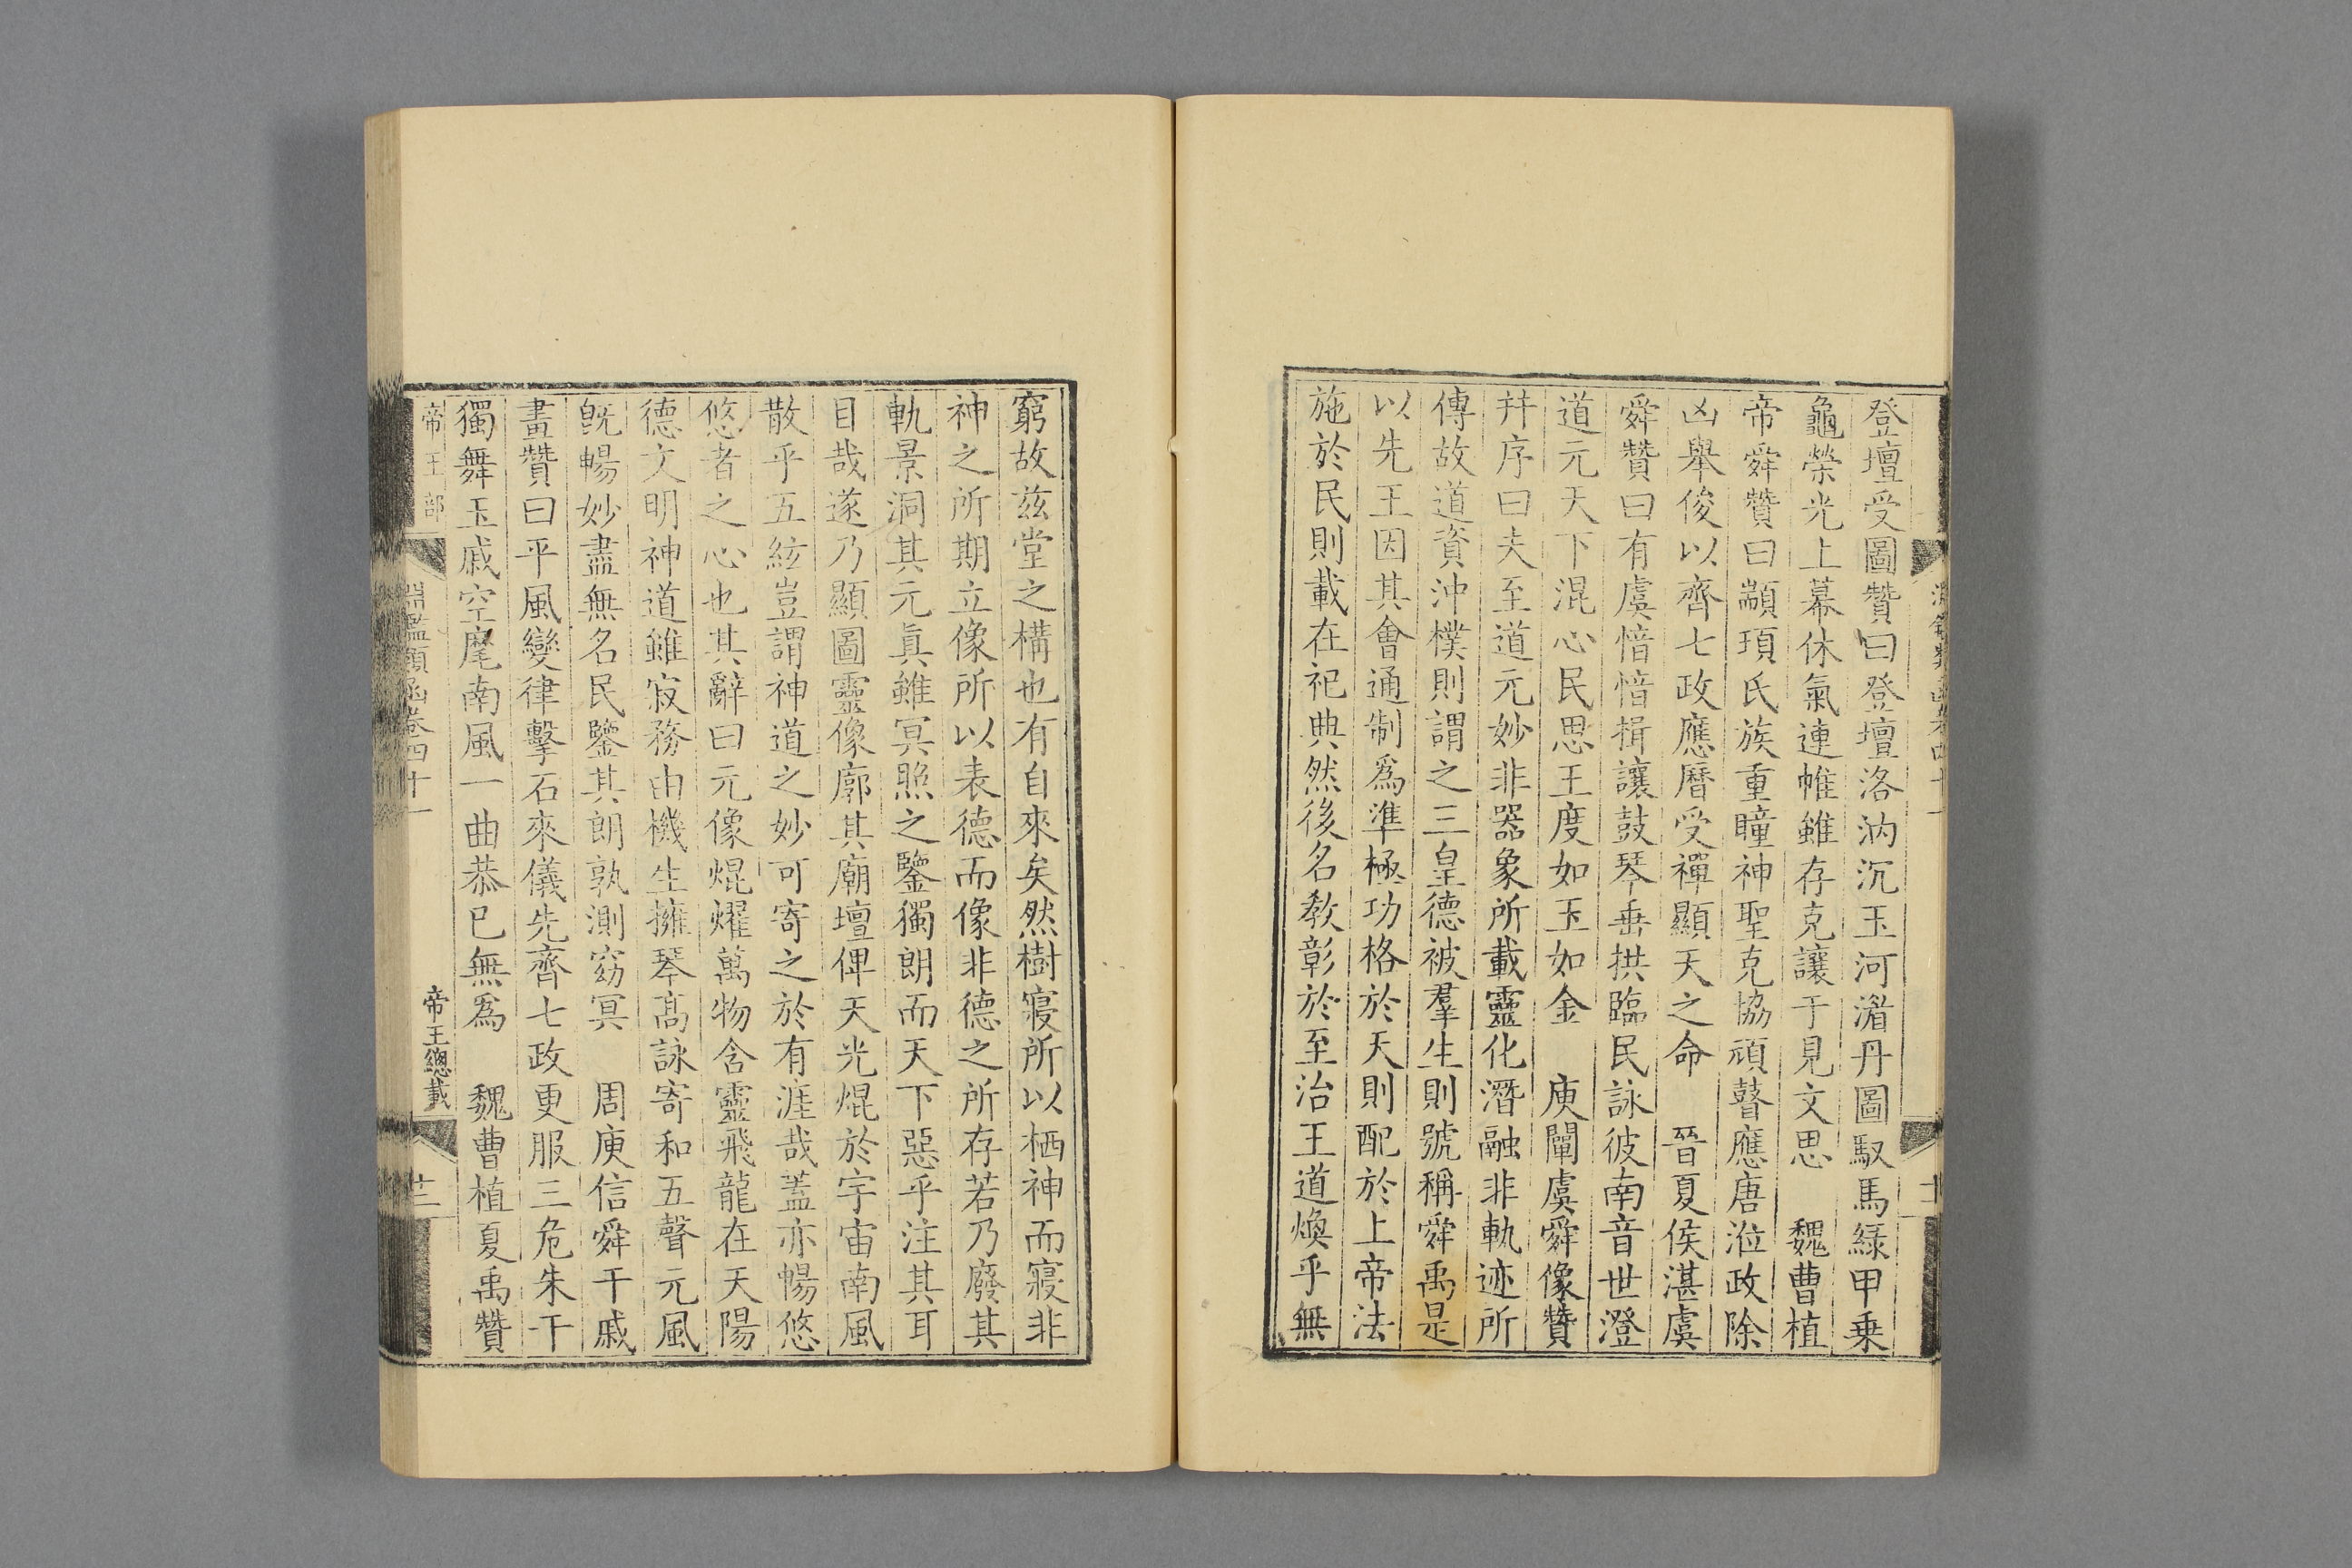 登壇受圖贊曰登壇洛汭沉玉河湄丹圖馭馬綠甲乗
龜榮光上幕休氣連帷雖存克讓于見文思　魏曹植
帝舜贊曰顓頊氏族重瞳神聖克協頑瞽應唐涖政除
凶舉俊以齊七政應曆受禪顯天之命　晉夏侯湛虞
舜贊曰有虞愔愔揖讓鼓琴垂拱臨民詠彼南音世澄
道元天下混心民思王度如玉如金　庾闡虞舜像贊
并序曰夫至道元妙非器象所載靈化潛融非軌迹所
傳故道資沖樸則謂之三皇德被羣生則號稱舜禹是
以先王因其會通制爲準極功格於天則配於上帝法
施於民則載在祀典然後名教彰於至治王道煥乎無
窮故兹堂之構也有自來矣然樹寢所以栖神而寢非
神之所期立像所以表德而像非德之所存若乃廢其
軌景洞其元眞雖冥照之鑒獨朗而天下惡乎注其耳
目哉遂乃顯圖靈像廓其廟壇俾天光焜於宇宙南風
散乎五絃豈謂神道之妙可寄之於有涯哉蓋亦暢悠
悠者之心也其辭曰元像焜燿萬物含靈飛龍在天陽
德文明神道雖寂務由機生擁琴髙詠寄和五聲元風
旣暢妙盡無名民鑒其朗孰測窈冥　周庾信舜干戚
畫贊曰平風變律擊石來儀先齊七政更服三危朱干
獨舞玉戚空麾南風一曲恭巳無爲　魏曹植夏禹贊
帝王部
淵鑑類函卷四十一
帝王總載